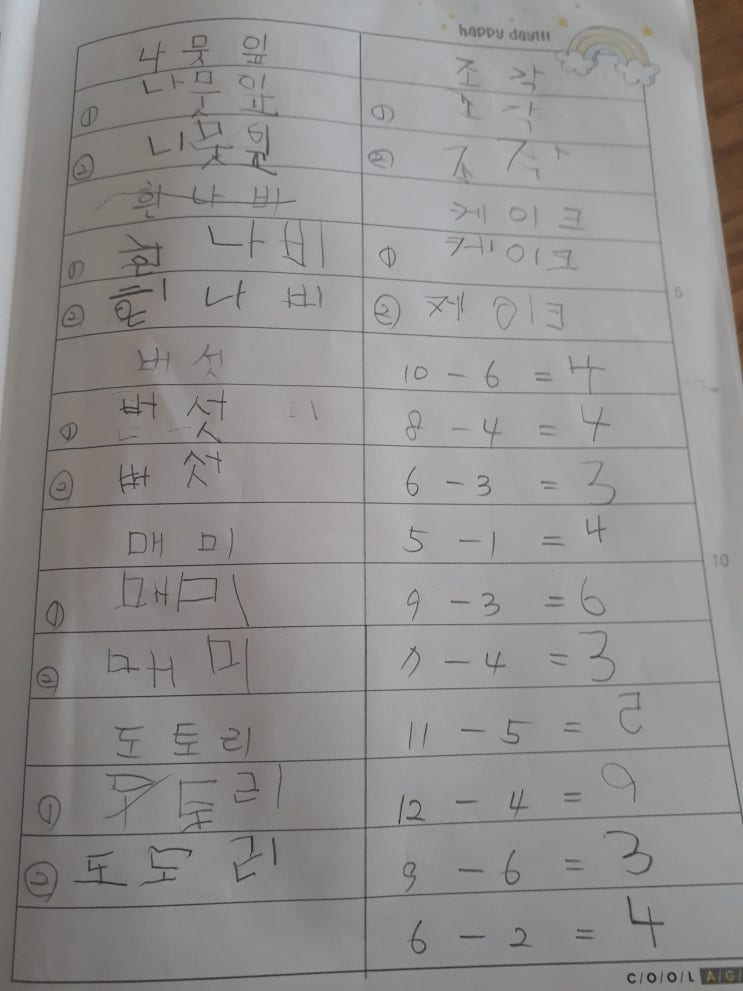 happy day!!!
나 뭇 잎
① 나 뭇 잎
② 나 뭇
흰 나 비
① 흰 나 비
② 나 비
버 섯
① 버 섯
② 버 섯
매 미
① 매 미
② 매 미
도 토 리
① 토 리
② 도 도 리
조 각
① 조 각
② 조 각
케 이 크
① 케 이 크
② 케 이 크
10 - 6 = 4
8 - 4 = 4
6 - 3 = 3
5 - 1 = 4
9 - 3 = 6
7 - 4 = 3
11 - 5 =
12 - 4 = 9
9 - 6 = 3
6 - 2 = 4
5
10
C/O/O/L A/G/